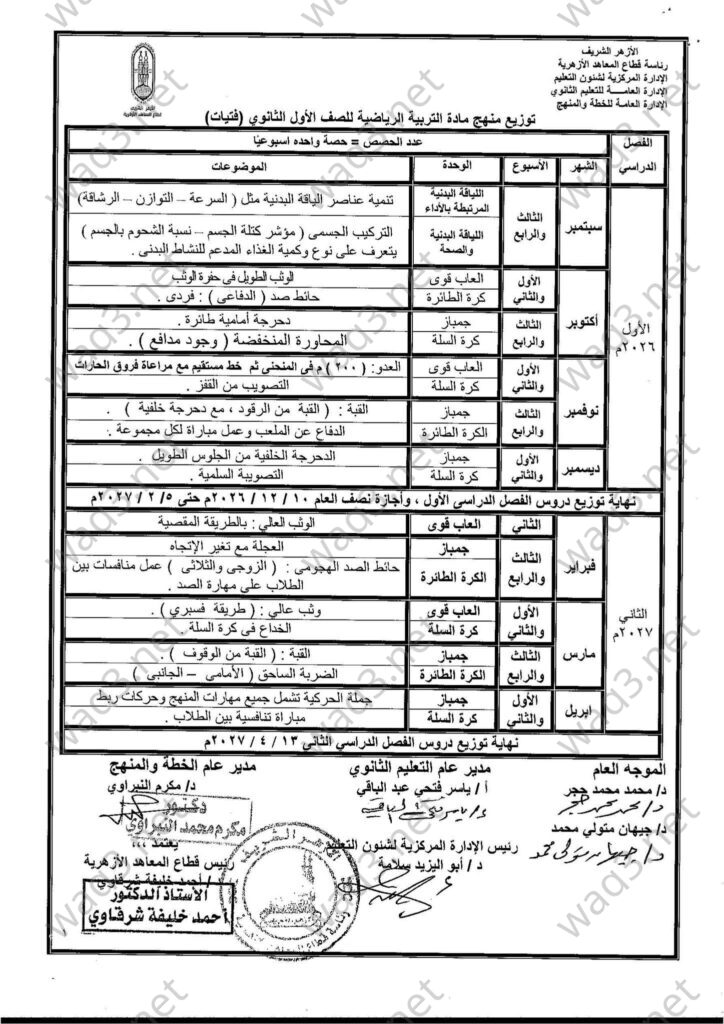 الأزهر الشريف
رئاسة قطاع المعاهد الأزهرية
الإدارة المركزية لشئون التعليم
الإدارة العامــــة للتعليم الثانوي
الإدارة العامة للخطة والمنهج
الأزهر الشريف
قطاع المعاهد الأزهرية
توزيع منهج مادة التربية الرياضية للصف الأول الثانوي (فتيات)
الفصل الدراسي
عدد الحصص = حصة واحده اسبوعيا
الشهر الأسبوع الوحدة الموضوعات
الأول ٢٠٢٦م
سبتمبر الثالث والرابع اللياقة البدنية المرتبطة بالأداء تنمية عناصر الياقة البدنية مثل ( السرعة – التوازن – الرشاقة)
اللياقة البدنية والصحة التركيب الجسمى ( مؤشر كتلة الجسم – نسبة الشحوم بالجسم )
يتعرف على نوع وكمية الغذاء المدعم للنشاط البدنى .
أكتوبر الأول والثاني العاب قوى الوثب الطويل فى حفرة الوثب
كرة الطائرة حائط صد ( الدفاعى ) : فردى .
الثالث والرابع جمباز دحرجة أمامية طائرة .
كرة السلة المحاورة المنخفضة ( وجود مدافع ) .
نوفمبر الأول والثاني العاب قوى العدو: ( ٢٠٠ ) م فى المنحنى ثم خط مستقيم مع مراعاة فروق الحارات
كرة السلة التصويب من القفز .
الثالث والرابع جمباز القبة : ( القبة من الرقود ، مع دحرجة خلفية ) .
الكرة الطائرة الدفاع عن الملعب وعمل مباراة لكل مجموعة .
ديسمبر الأول والثاني جمباز الدحرجة الخلفية من الجلوس الطويل .
كرة السلة التصويبة السلمية .
نهاية توزيع دروس الفصل الدراسي الأول ، وأجازة نصف العام ١٠ / ١٢ / ٢٠٢٦م حتى ٥ / ٢ / ٢٠٢٧م
الثاني ٢٠٢٧م
فبراير الثاني العاب قوى الوثب العالي : بالطريقة المقصية
الثالث والرابع جمباز العجلة مع تغير الإتجاه
الكرة الطائرة حائط الصد الهجومى : ( الزوجى والثلاثى ) عمل منافسات بين
الطلاب على مهارة الصد .
مارس الأول والثاني العاب قوى وثب عالي : ( طريقة فسبري ) .
كرة السلة الخداع فى كرة السلة .
الثالث والرابع جمباز القبة : ( القبة من الوقوف ) .
الكرة الطائرة الضربة الساحق ( الأمامى – الجانبى ) .
ابريل الأول والثاني جمباز جملة الحركية تشمل جميع مهارات المنهج وحركات ربط
كرة السلة مباراة تنافسية بين الطلاب .
نهاية توزيع دروس الفصل الدراسي الثانى ١٣ / ٤ / ٢٠٢٧م
الموجه العام مدير عام التعليم الثانوي مدير عام الخطة والمنهج
د/ محمد محمد حجر أ / ياسر فتحي عبد الباقي د/ مكرم النبراوي
د/ محمد محمد حجر
دكتور
مكرم محمد النبراوي
د/ جيهان متولي محمد
د/ جيهان متولى محمد
رئيس الإدارة المركزية لشئون التعليم
د / أبو اليزيد سلامة
يعتمد ،،،
رئيس قطاع المعاهد الأزهرية
أ / أحمد خليفة شرقاوي
الأستاذ الدكتور
أحمد خليفة شرقاوي
الأزهر الشريف
waq3.net